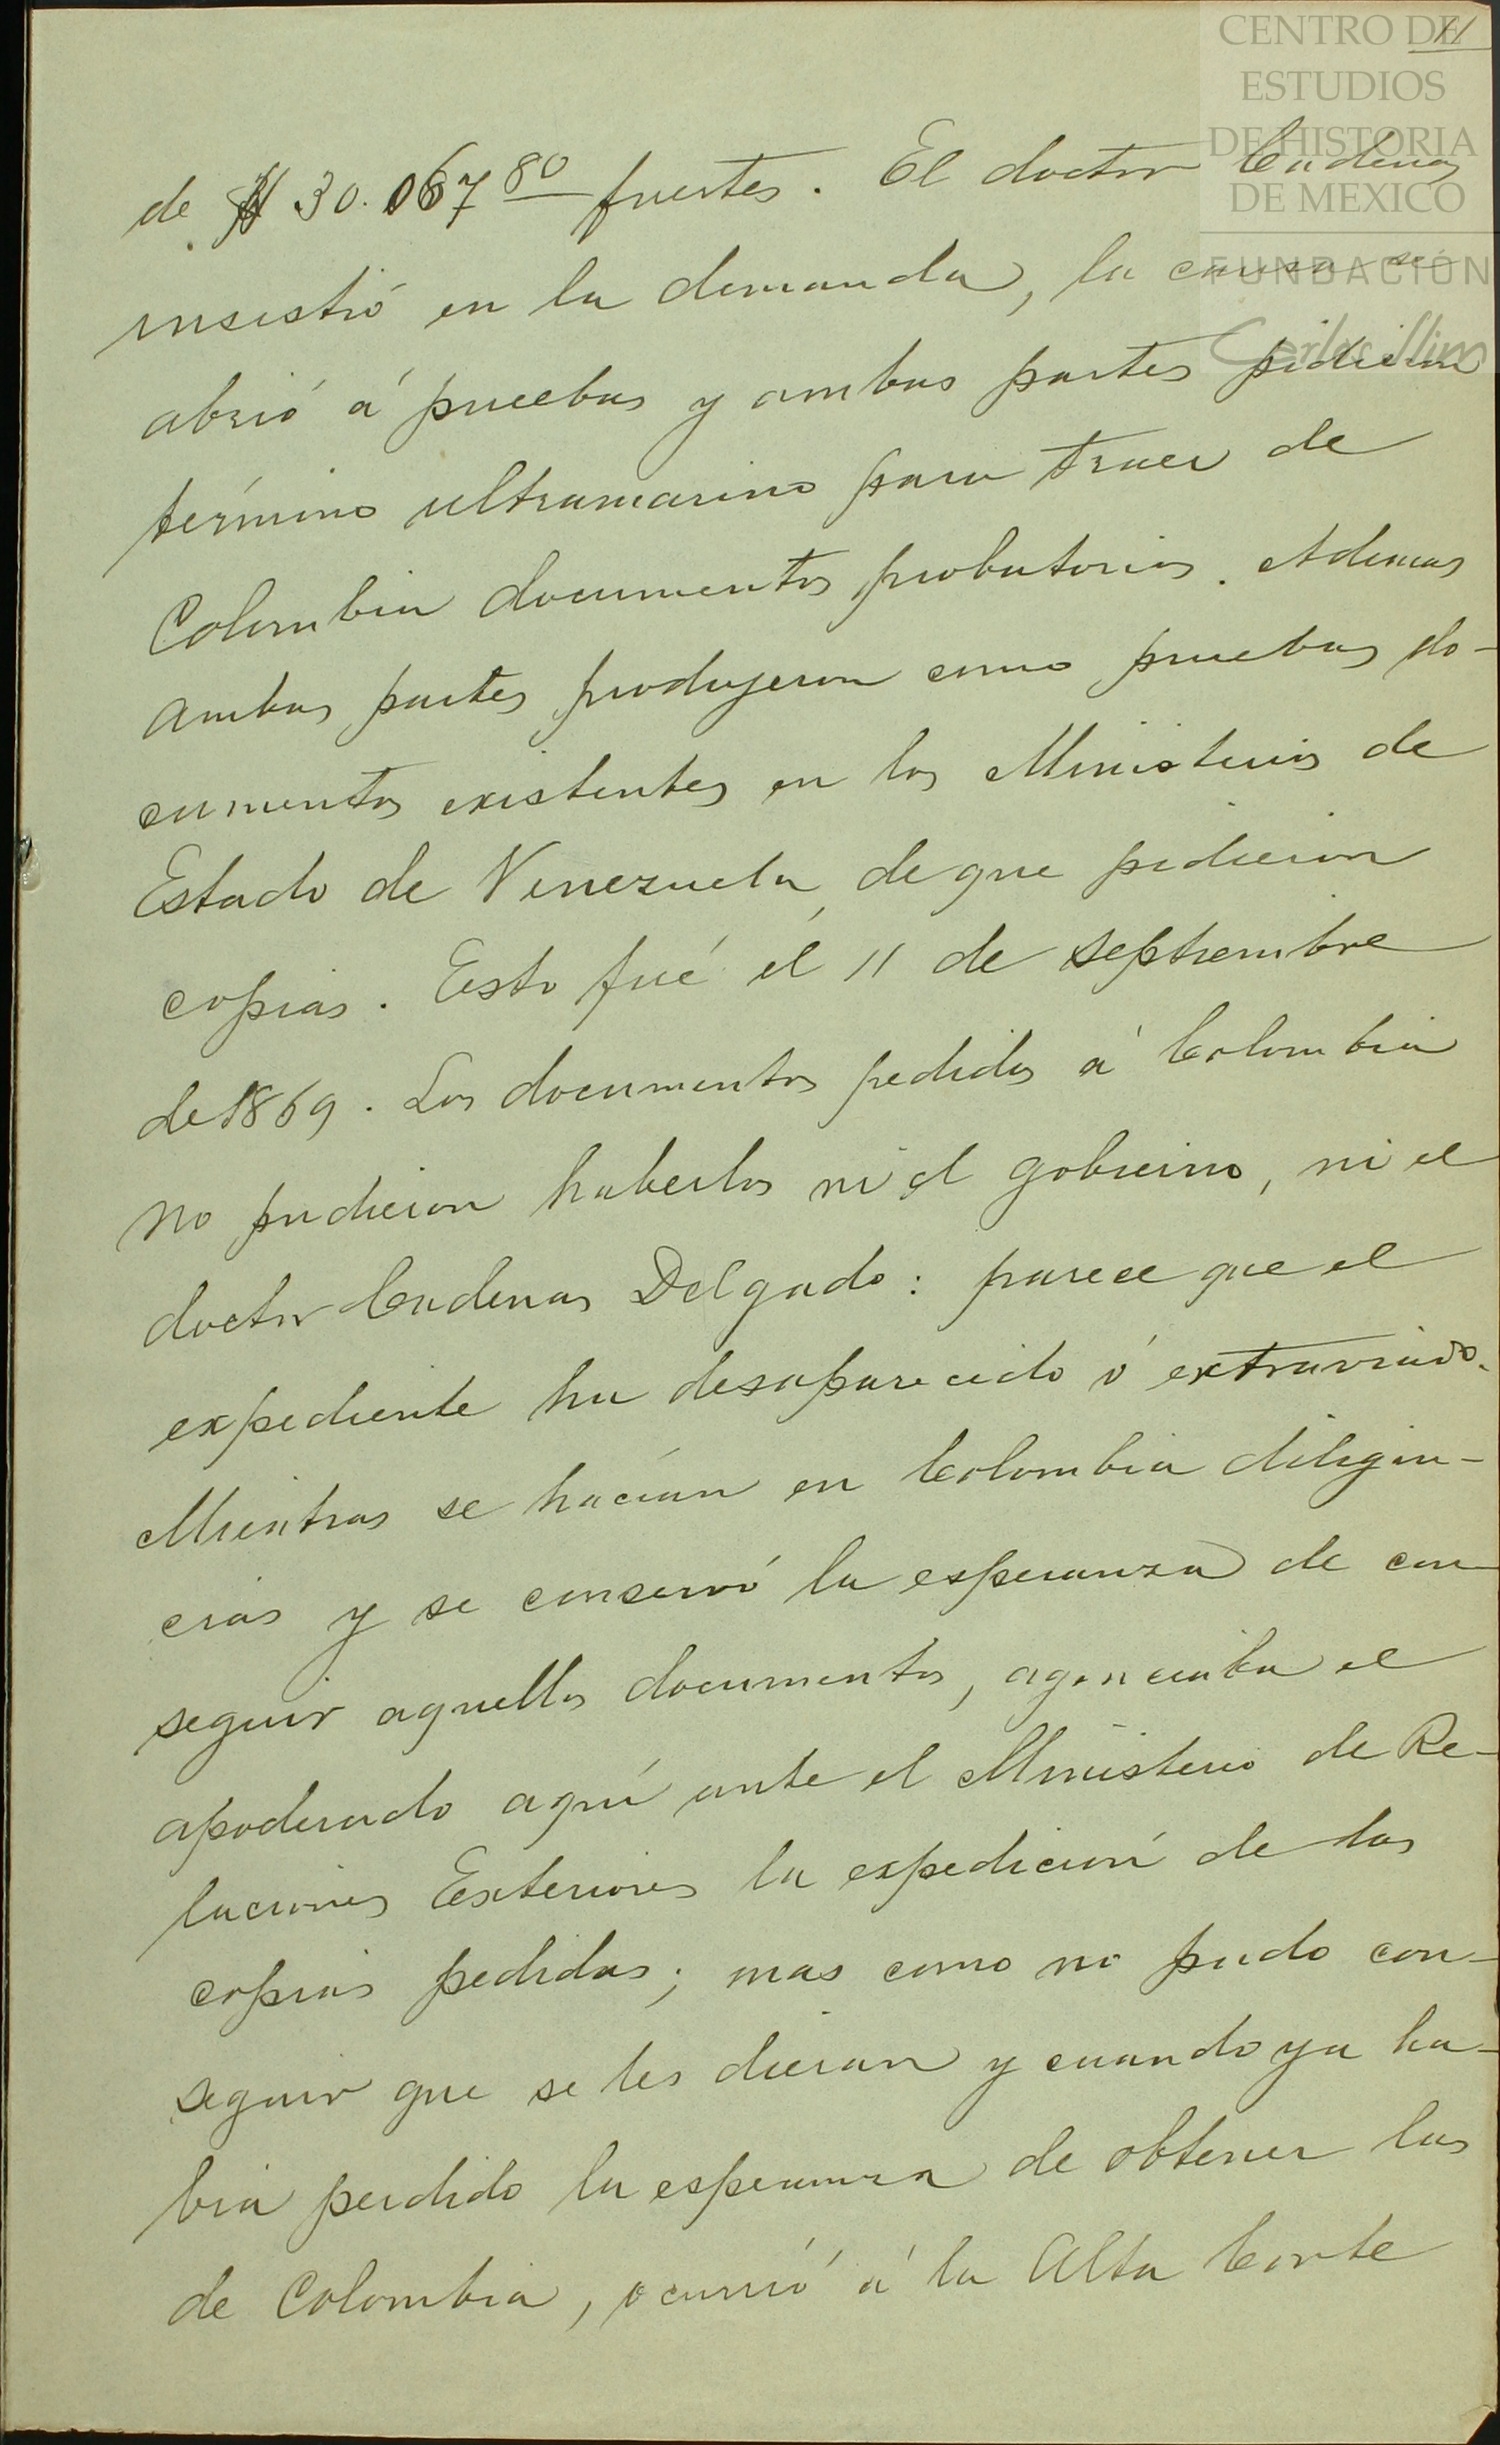 11
CENTRO DE
ESTUDIOS
DE HISTORIA
DE MEXICO
FUNDACIÓN
Carlos Slim
de $ 30.067 80 fuertes. El doctor Cadenas
insistió en la demanda, la causa se
abrió á pruebas y ambas partes pidieron
término ultramarino para traer de
Colombia documentos probatorios. Ademas
ambas partes produjeron como pruebas do-
cumentos existentes en los Ministerios de
Estado de Venezuela, de que pidieron
copias. Esto fué el 11 de septiembre
de 1869. Los documentos pedidos á Colombia
no pudieron haberlos ni el gobierno, ni el
doctor Cadenas Delgado: parece que el
expediente ha desaparecido ó extraviado.
Mientras se hacían en Colombia diligen-
cias y se conservó la esperanza de con
seguir aquellos documentos, agenciaba el
apoderado aquí ante el Ministerio de Re-
laciones Exteriores la expedición de las
copias pedidas; mas como no pudo con-
seguir que se les dieran y cuando ya ha-
bia perdido la esperanza de obtener las
de Colombia, ocurrió á la Alta Corte